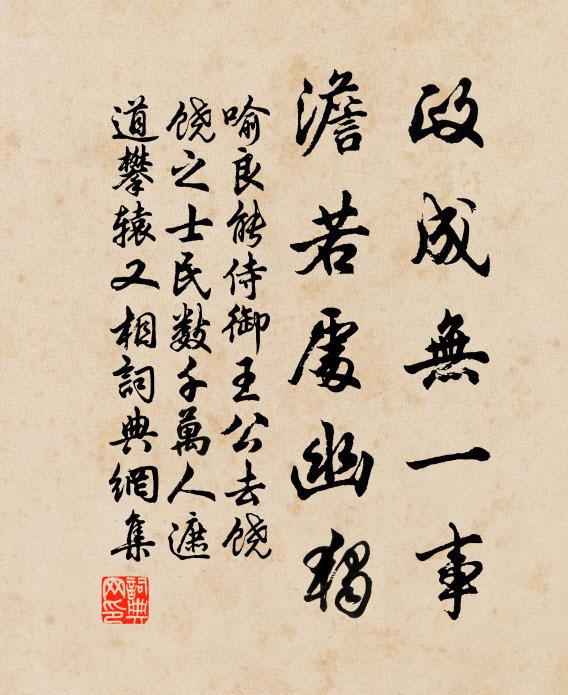 政成無一事
澹若處幽獨
喻良能侍御王公去饶
饶之士民数千萬人遮
道攀辕又相詞典網集
詞典網印